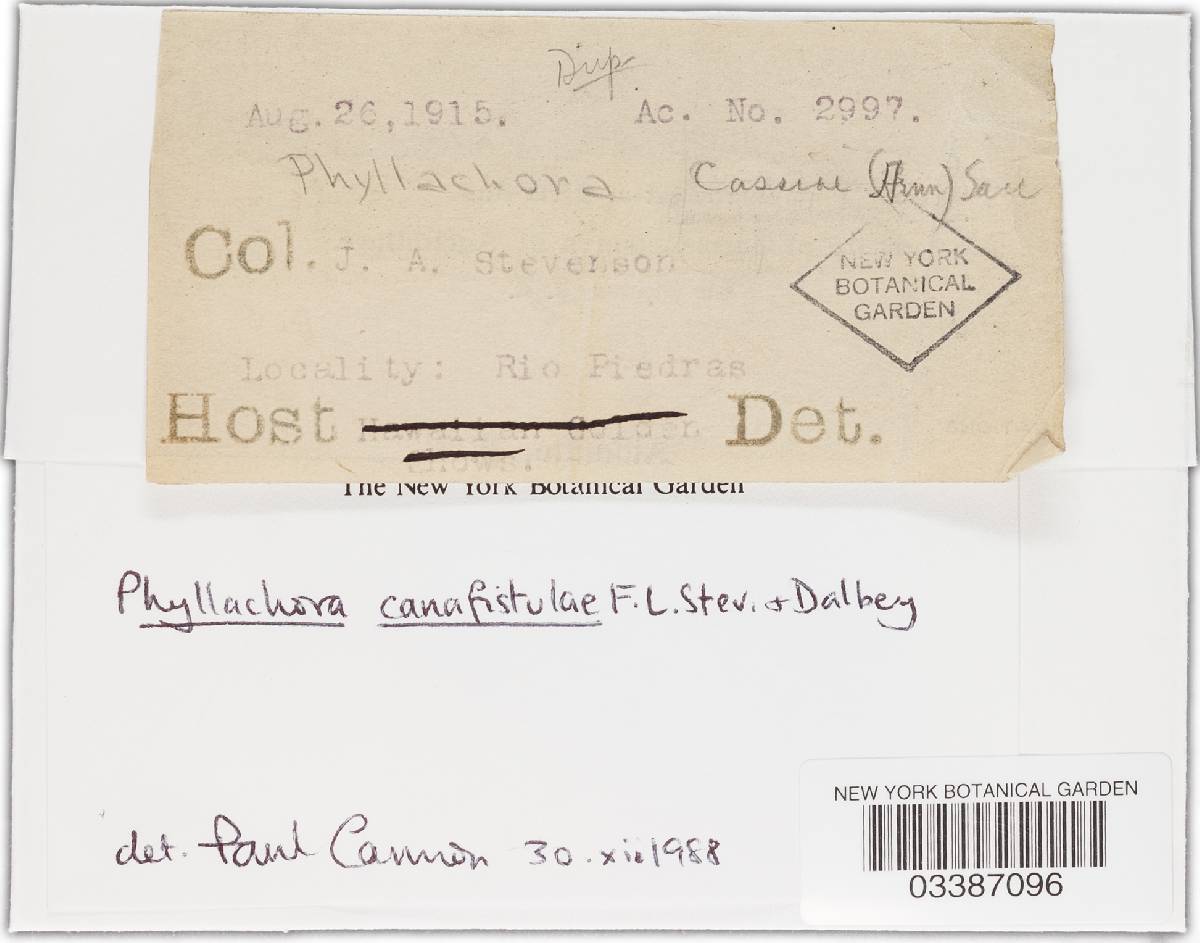 Dup
Aug. 26, 1915. Ac. No. 2997.
Phyllachora Cassiae
Col. J. A. Stevenson
NEW YORK
BOTANICAL
GARDEN
Locality: Rio Piedras
Host Hawaiian Golden Det.
Shows.
The New York Botanical Garden
Phyllachora canafistulae F.L.Stev. & Dalbey
det. Paul Cannon 30.xii1988
NEW YORK BOTANICAL GARDEN
03387096